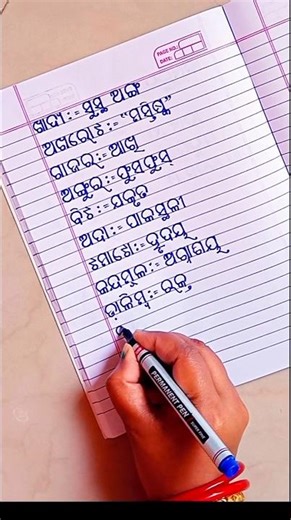 PAGE NO.:
DATE:
ଖାଦ୍ୟ := ସୁସ୍ଥ ଅଙ୍ଗ
ଅଖରୋଟ := "ମସ୍ତିଷ୍କ"
ଗାଜର := ଆଖି
ଅଙ୍ଗୁର := ଫୁସଫୁସ୍
ବିଟ := ଯକୃତ
ଅଦା := ପାକସ୍ଥଳୀ
ଟମାଟୋ := ହୃଦୟ
କନ୍ଦମୂଳ := ଅଗ୍ନାଶୟ
ଡାଳିମ୍ବ := ରକ୍ତ
PERMANENT PEN